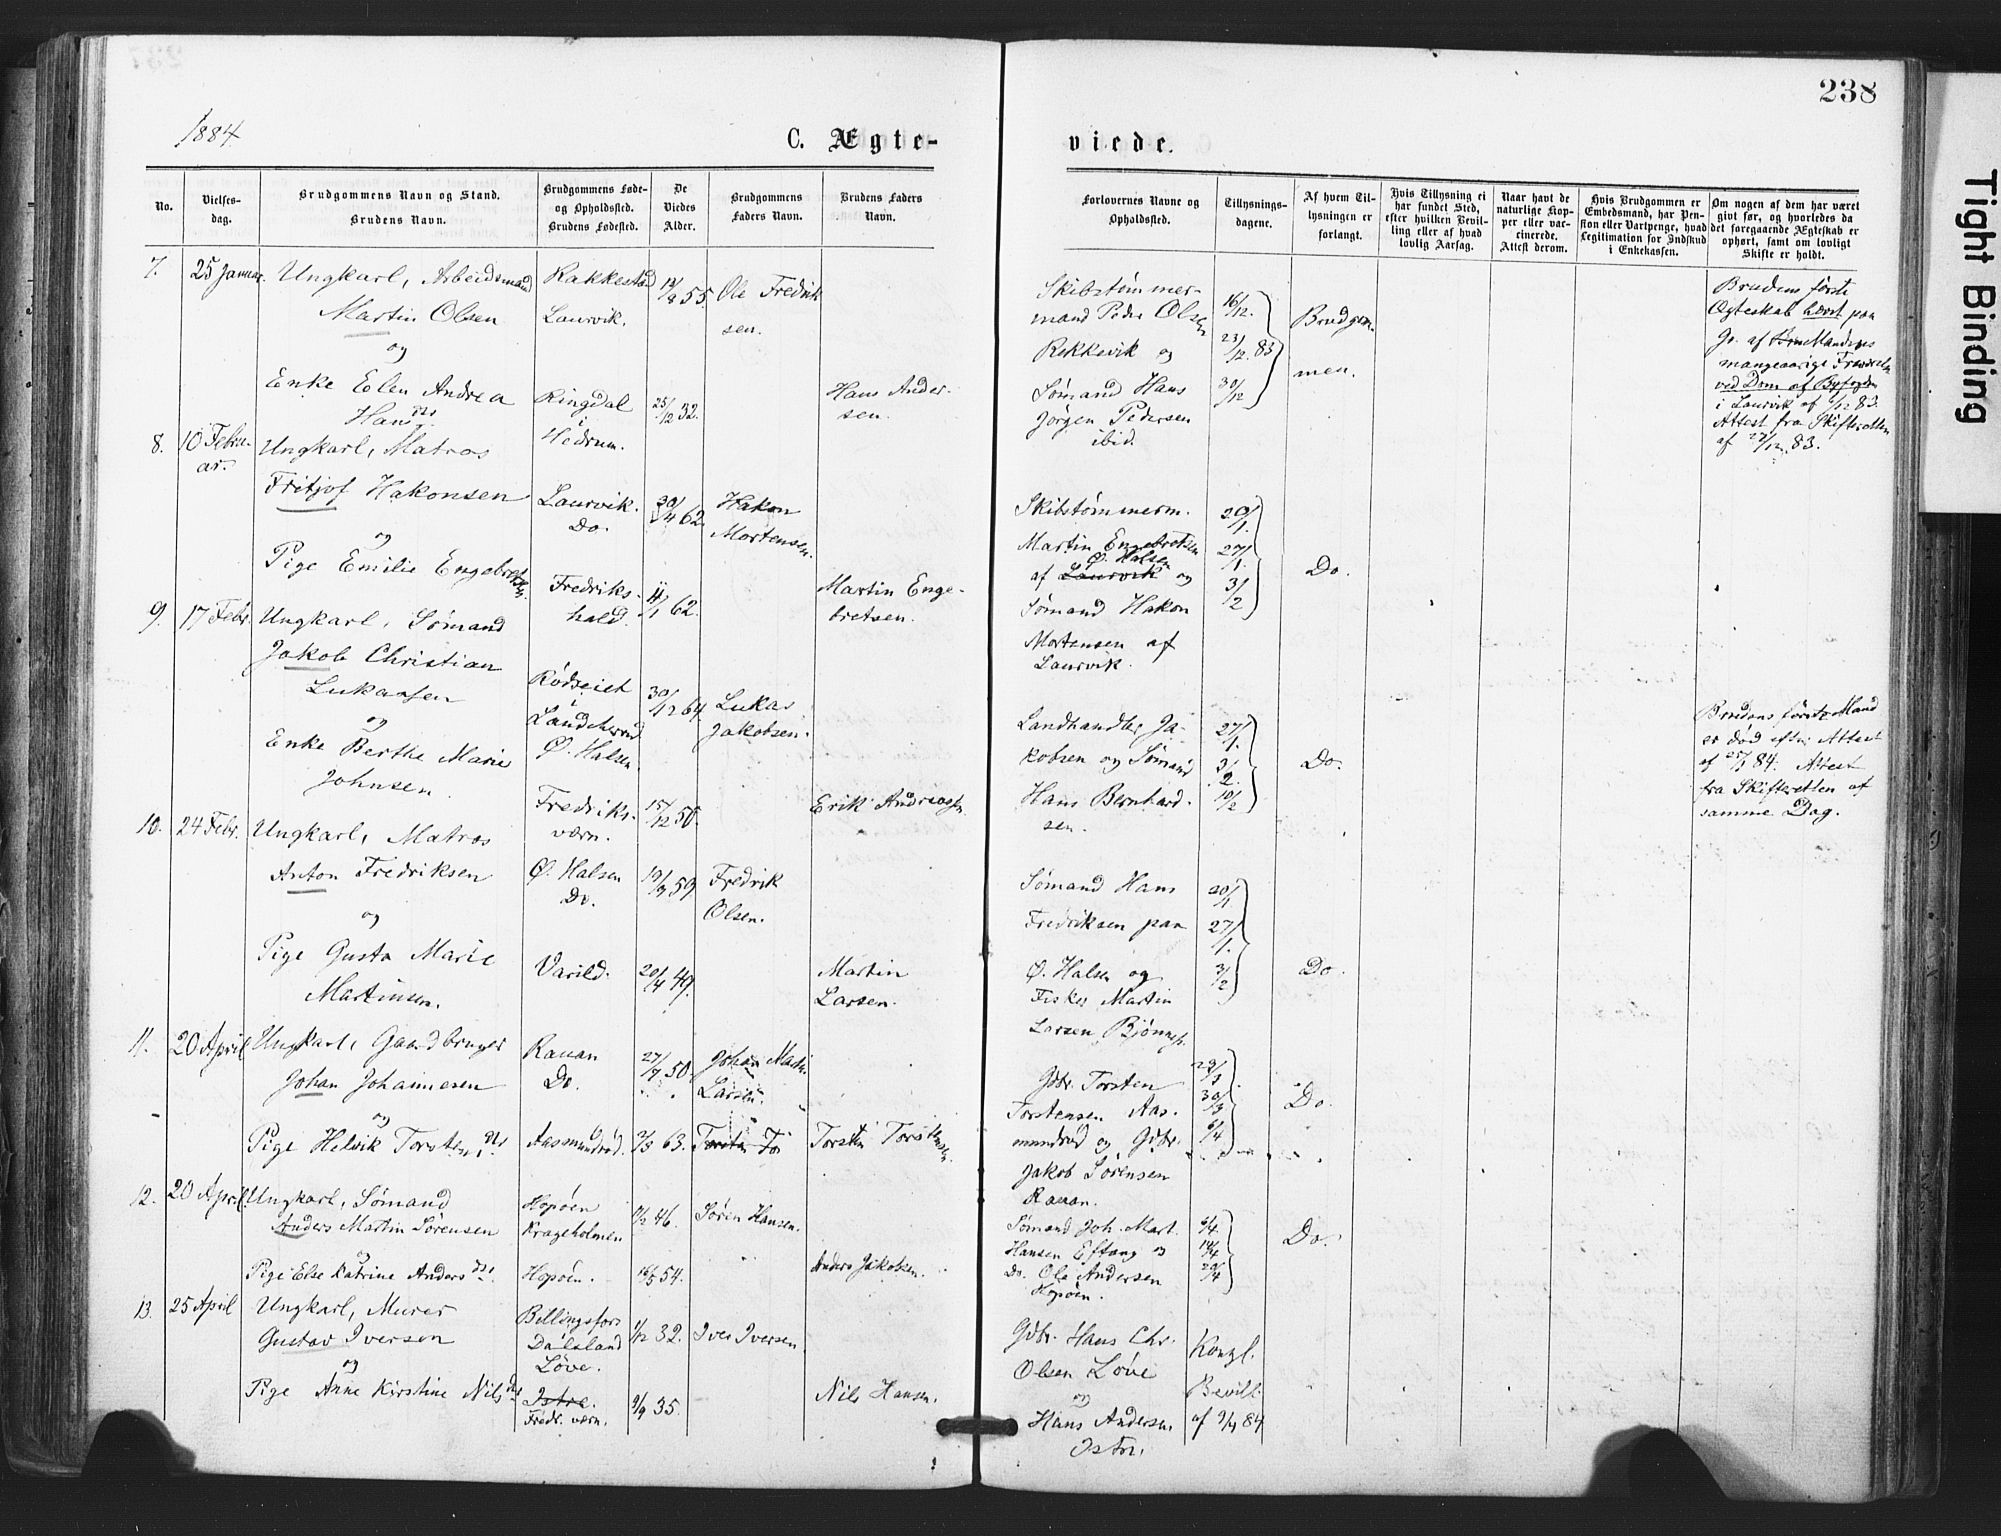 238
1884
C. Ægte-
viede.
No.
Vielses-
dag.
Brudgommens Navn og Stand.
Brudens Navn.
Brudgommens Føde-
og Opholdssted.
Brudens Fødested.
De
Viedes
Alder.
Brudgommens
Faders Navn.
Brudens Faders
Navn.
Forlovernes Navne og
Opholdssted.
Tillysnings-
dagene.
Af hvem Til-
lysningen er
forlangt.
Hvis Tillysning ei
har fundet Sted,
efter hvilken Bevil-
ling eller af hvad
lovlig Aarsag.
Naar havt de
naturlige Kop-
per eller vac-
cinerede.
Attest derom.
Hvis Brudgommen er
Embedsmand, har Pen-
sion eller Vartpenge, hvad
Legitimation for Indskud
i Enkekassen.
Om nogen af dem har været
givt før, og hvorledes da
det foregaaende Ægteskab er
ophørt, samt om lovligt
Skifte er holdt.
7.
25 Januar.
Ungkarl, Arbeidsmand
Martin Olsen
og
Enke Elen Andrea
Hansdtr.
Rakkestad
Laurvik.
Ringdal
i
Hedrum.
55.
25/12 32.
Ole Fredrik
sen.
Hans Ander-
sen.
Skibstømmer-
mand Peder Olsen
Rekkevik og
Sømand Hans
Jørgen Pedersen
ibid.
16/12.
23/12. 83
30/12
Brudgom-
men.
Brudens første
Ægteskab hævet paa
Gr. af Mandens
mangeaarige Fravær
ved Dom af Byfogden
i Laurvik af /12 83.
Attest fra Skifteretten
af 27/12. 83.
8.
10 Febru-
ar.
Ungkarl, Matros
Fritjof Hakonsen
og
Pige Emilie Engebretsen
Laurvik.
Do.
Fredriks-
hald.
30/4 62.
11/1 62.
Hakon
Mortensen.
Martin Enge-
bretsen.
Skibstømmerm.
Martin Engebretsen
Ø. Halsen
af Laurvik og
Sømand Hakon
Mortensen af
Laurvik.
20/1.
27/1.
3/2
Do.
9.
17 Febr.
Ungkarl, Sømand
Jakob Christian
Lukassen
og
Enke Berthe Marie
Johnsen.
Rødseiet
Landeherred
Ø. Halsen
Fredriks-
værn.
30/12 64.
15/12 50.
Lukas
Jakobsen.
Erik Andreassen
Landhandler Ja-
kobsen og Sømand
Hans Bernhard-
sen.
27/1.
3/2.
10/2
Do.
Brudens første Mand
er død efter Attest
af 25/1 84. Attest
fra Skifteretten af
samme Dag.
10.
24 Febr.
Ungkarl, Matros
Anton Fredriksen
og
Pige Gusta Marie
Martinsen.
Ø. Halsen
Do.
Varild.
19/9 59.
20/4 49.
Fredrik
Olsen.
Martin
Larsen.
Sømand Hans
Fredriksen paa
Ø. Halsen og
Fisker Martin
Larsen
20/1.
27/1.
3/2
Do.
11.
20 April
Ungkarl, Gaardbruger
Johan Johannesen
og
Pige Helvik Torstensdtr.
Rauan
Do.
Aasmundrød.
27/7 50.
2/3 63.
Johan Martin
Larsen.
Torsten Tor
Torsten Torstensen
Gdbr. Torsten
Torstensen Aas-
mundrød og Gdbr.
Jakob Sørensen
Rauan.
23/3
30/3
6/4
Do.
12.
20 April
Ungkarl, Sømand
Anders Martin Sørensen
og
Pige Else Katrine Andersdtr.
Hopøen
Krageholmen
Hopøen.
46.
16/5 54.
Søren Hansen.
Anders Jakobsen.
Sømand Joh. Mart.
Hansen Eftang og
Do. Ole Andersen
Hopøen.
6/4.
14/4
20/4
Do.
13.
25 April
Ungkarl, Murer
Gustav Iversen
og
Pige Anne Kirstine Nilsdtr
Billingsfors
Dalsland
Løve.
Istre.
Fredr. værn.
1/12 32.
9/9 35.
Iver Iversen.
Nils Hansen.
Gdbr. Hans Chr.
Olsen Løve
og
Hans Andersen
Istre.
Kongl.
Bevill.
af 9/4 84
Tight Binding